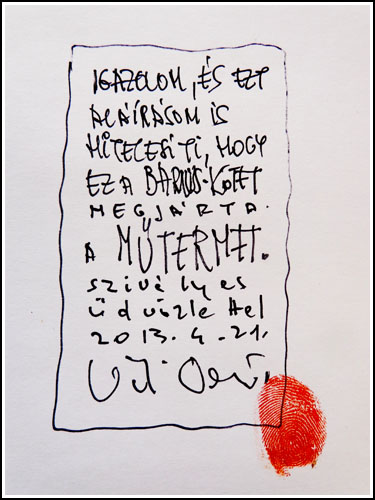 IGAZOLOM, ÉS EZT
ALÁÍRÁSOM IS
HITELESÍTI, HOGY
EZ A KÖTET
MEGJÁRTA
A MŰTERMET.
szivélyes
üdvözlettel
2013. 4. 21.